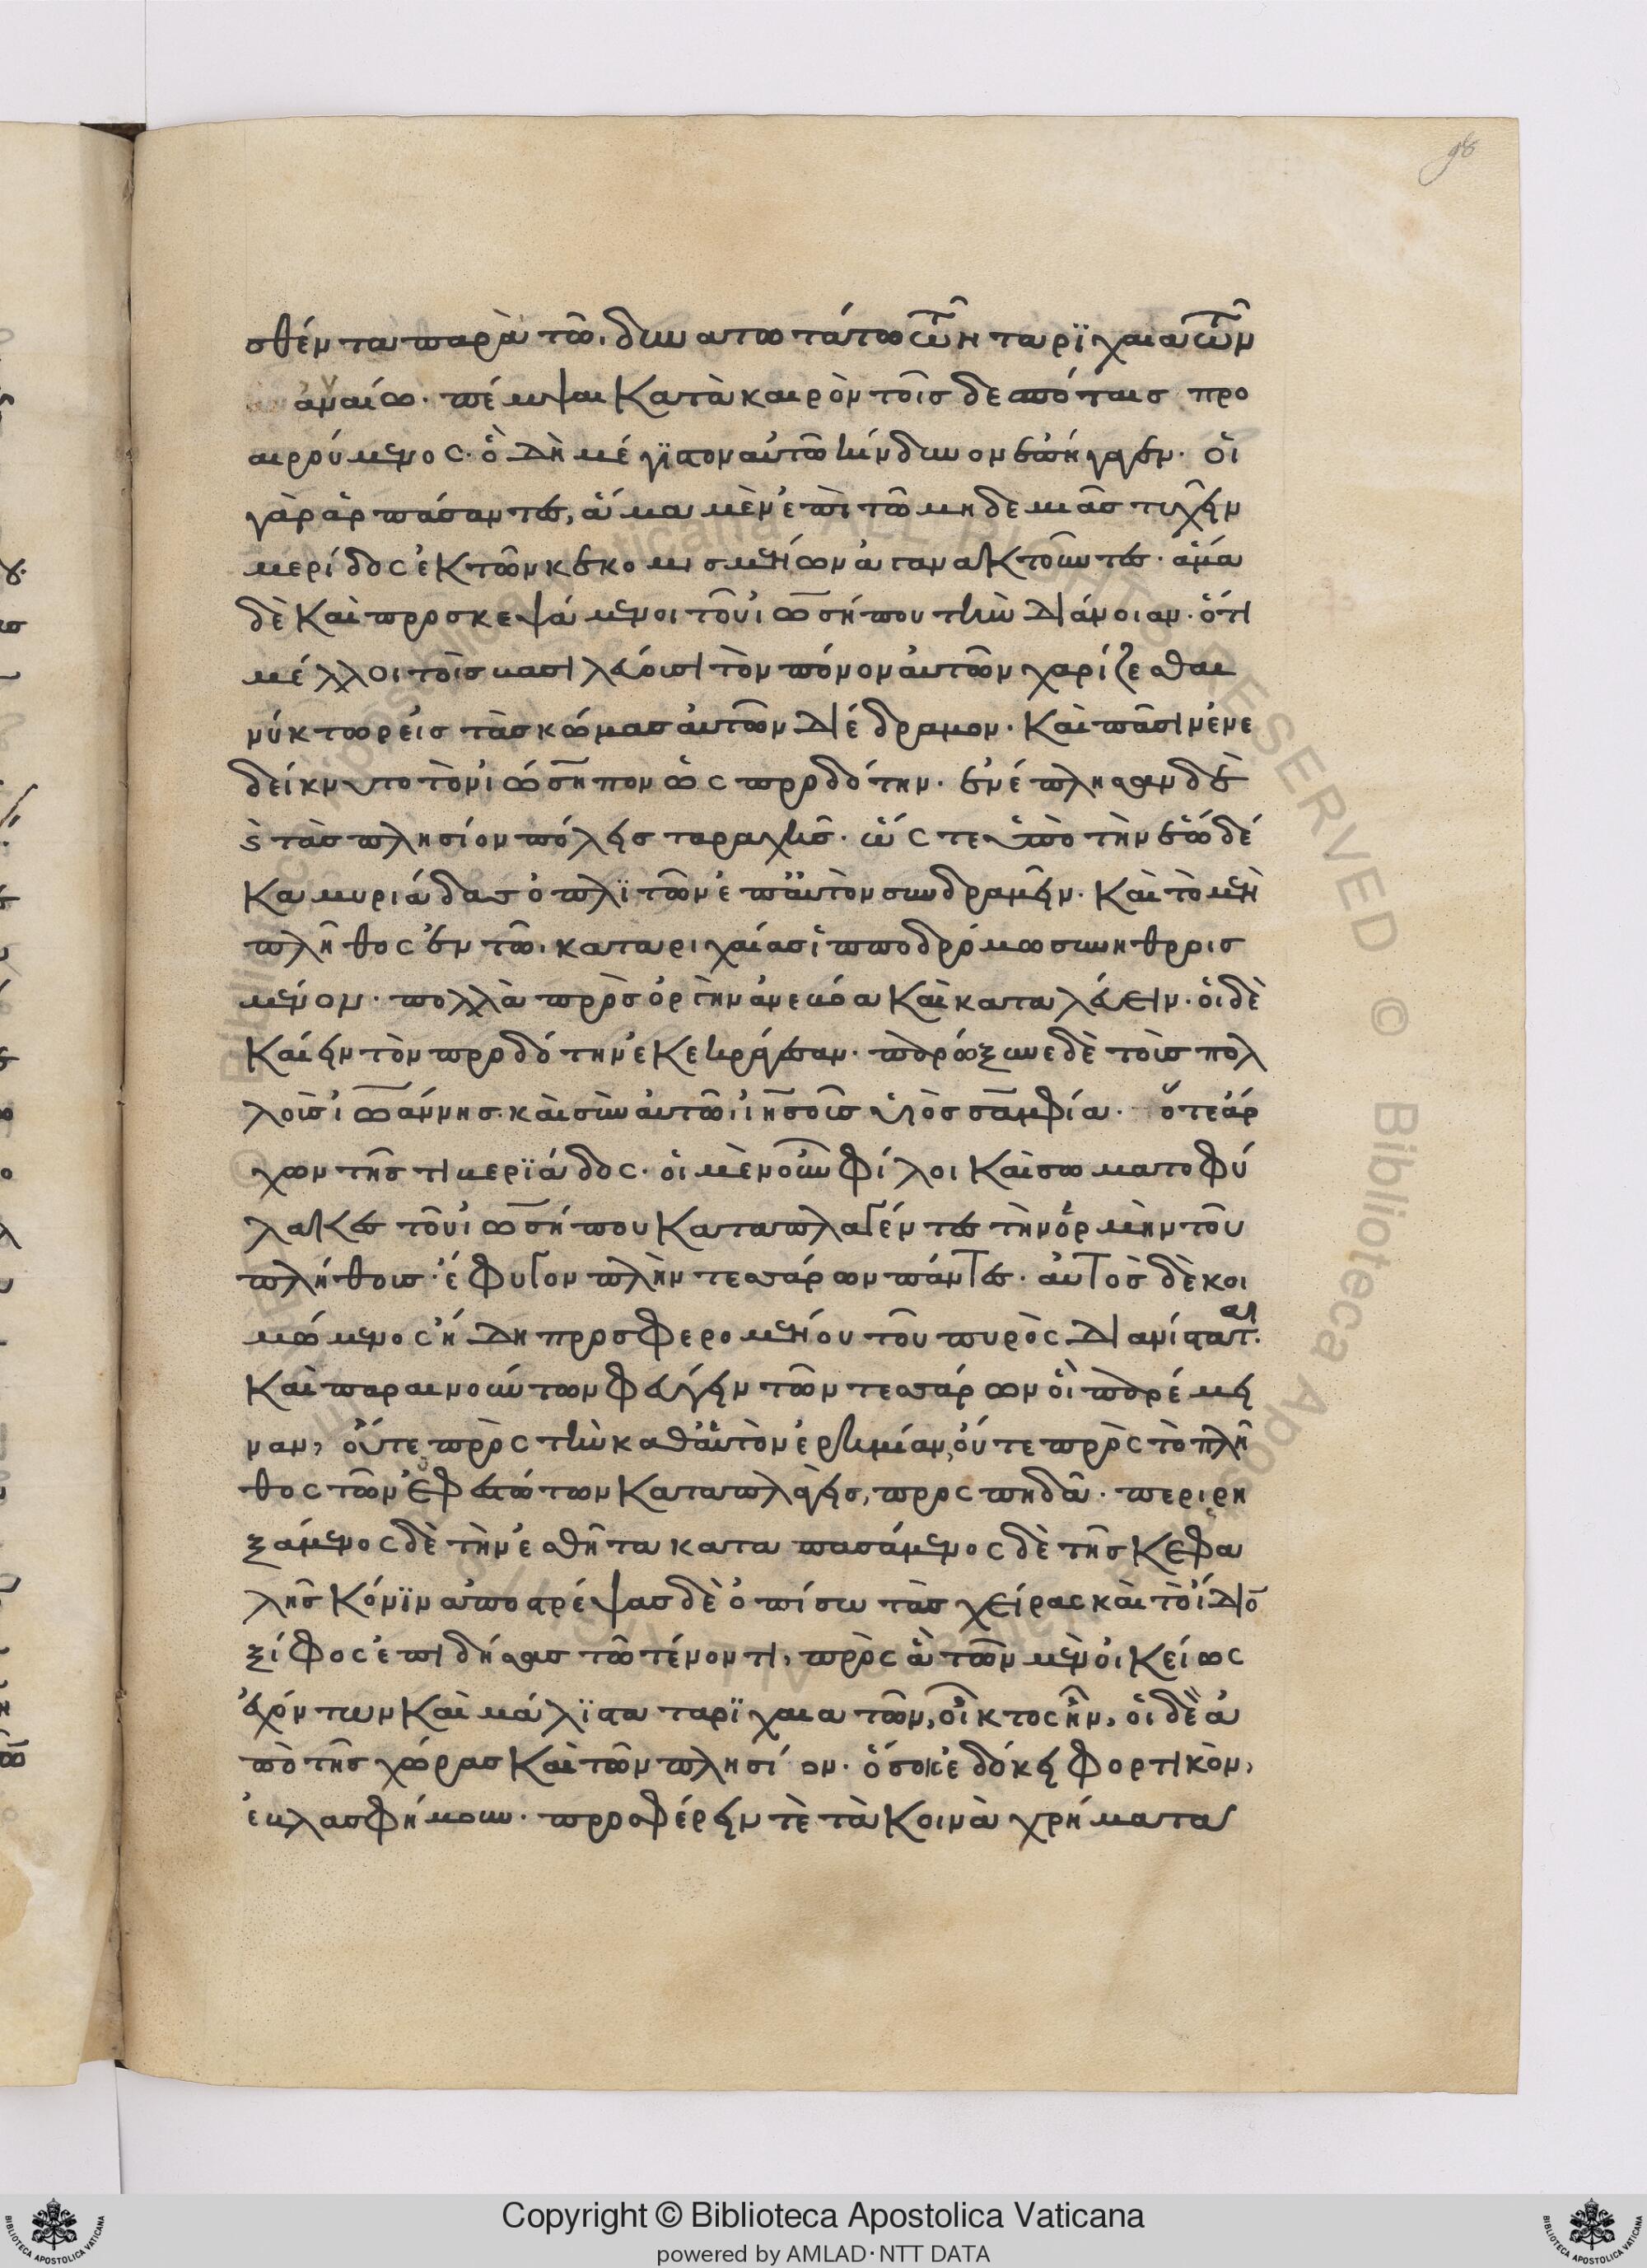 98
σθέντα παρὰ τῶ δυνατωτάτω τῶν ταριχαιατῶν
ἀνναίω. πέμψαι κατὰ καιρὸν τοῖς δεσπόταις προ
αιρούμενος. ὃ δὴ μέγιστον αὐτῶ κίνδυνον ἐπήγαγεν. οἱ
γὰρ ἁρπάσαντες, ἅμα μὲν ἐπὶ τῶ μηδεμιᾶς τυχεῖν
μερίδος ἐκ τῶν κεκομισμένων ἀγανακτοῦντες. ἅμα
δὲ καὶ προσκεψάμενοι τοῦ ἰωσήπου τὴν διάνοιαν. ὅτι
μέλλοι τοῖς βασιλεῦσι τὸν πόνον αὐτῶν χαρίζεσθαι
νύκτωρ εἰς τὰς κώμας αὐτῶν διέδραμον. καὶ πᾶσιν ἐνε
δείκνυντο τὸν ἰώσηπον ὡς προδότην. ἐνέπλησαν δὲ
καὶ τὰς πλησίον πόλεις ταραχῆς. ὥς τε ὑπὸ τὴν ἕω δέ
κα μυριάδας ὁπλιτῶν ἐπ' αὐτὸν συνδραμεῖν. καὶ τὸ μὲν
πλῆθος ἐν τῶ κατὰ ριχαίας ἱπποδρόμω συνηθροισ
μένον. πολλὰ πρὸς ὀργὴν ἀνεβόα καὶ καταλεύειν. οἱ δὲ
καίειν τὸν προδότην ἐκεκράγεσαν. παρώξυνε δὲ τοὺς πολ
λοὺς ἰωάννης. καὶ σὺν αὐτῶ ἰησοῦς υἱὸς σαμφία. ὅτε ἄρ
χων τῆς τιβεριάδος. οἱ μὲν οὖν φίλοι καὶ σωματοφύ
λακες τοῦ ἰωσήπου καταπλαγέντες τὴν ὁρμὴν τοῦ
πλήθους ἔφυγον πλὴν τεσσάρων πάντες. αὐτὸς δὲ κοι
μώμενος ἤδη προσφερομένου τοῦ πυρὸς διανίσταται.
καὶ παραινούντων φεύγειν τῶν τεσσάρων οἳ παρέμει
ναν, οὔτε πρὸς τὴν καθ' αὑτὸν ἐρημίαν, οὔτε πρὸς τὸ πλῆ
θος τῶν ἐφεστώτων καταπλαγεὶς, προσπηδᾶ. περιρη
ξάμενος δὲ τὴν ἐσθῆτα καταπασάμενος δὲ τῆς κεφα
λῆς κόνιν ἀποστρέψας δὲ ὀπίσω τὰς χεῖρας καὶ τὸ ἴδιον
ξίφος ἐπιδήσας τῶ τένοντι, πρὸς ἃ τῶν μὲν οἰκείως
ἐχόντων καὶ μάλιστα ταριχαιατῶν, οἶκτος ἦν, οἱ δὲ ἀ
πὸ τῆς χώρας καὶ τῶν πλησίον. ὅσοις ἐδόκει φορτικὸν,
ἐβλασφήμουν. προφέρειν τὲ τὰ κοινὰ χρήματα
Copyright © Biblioteca Apostolica Vaticana
powered by AMLAD·NTT DATA